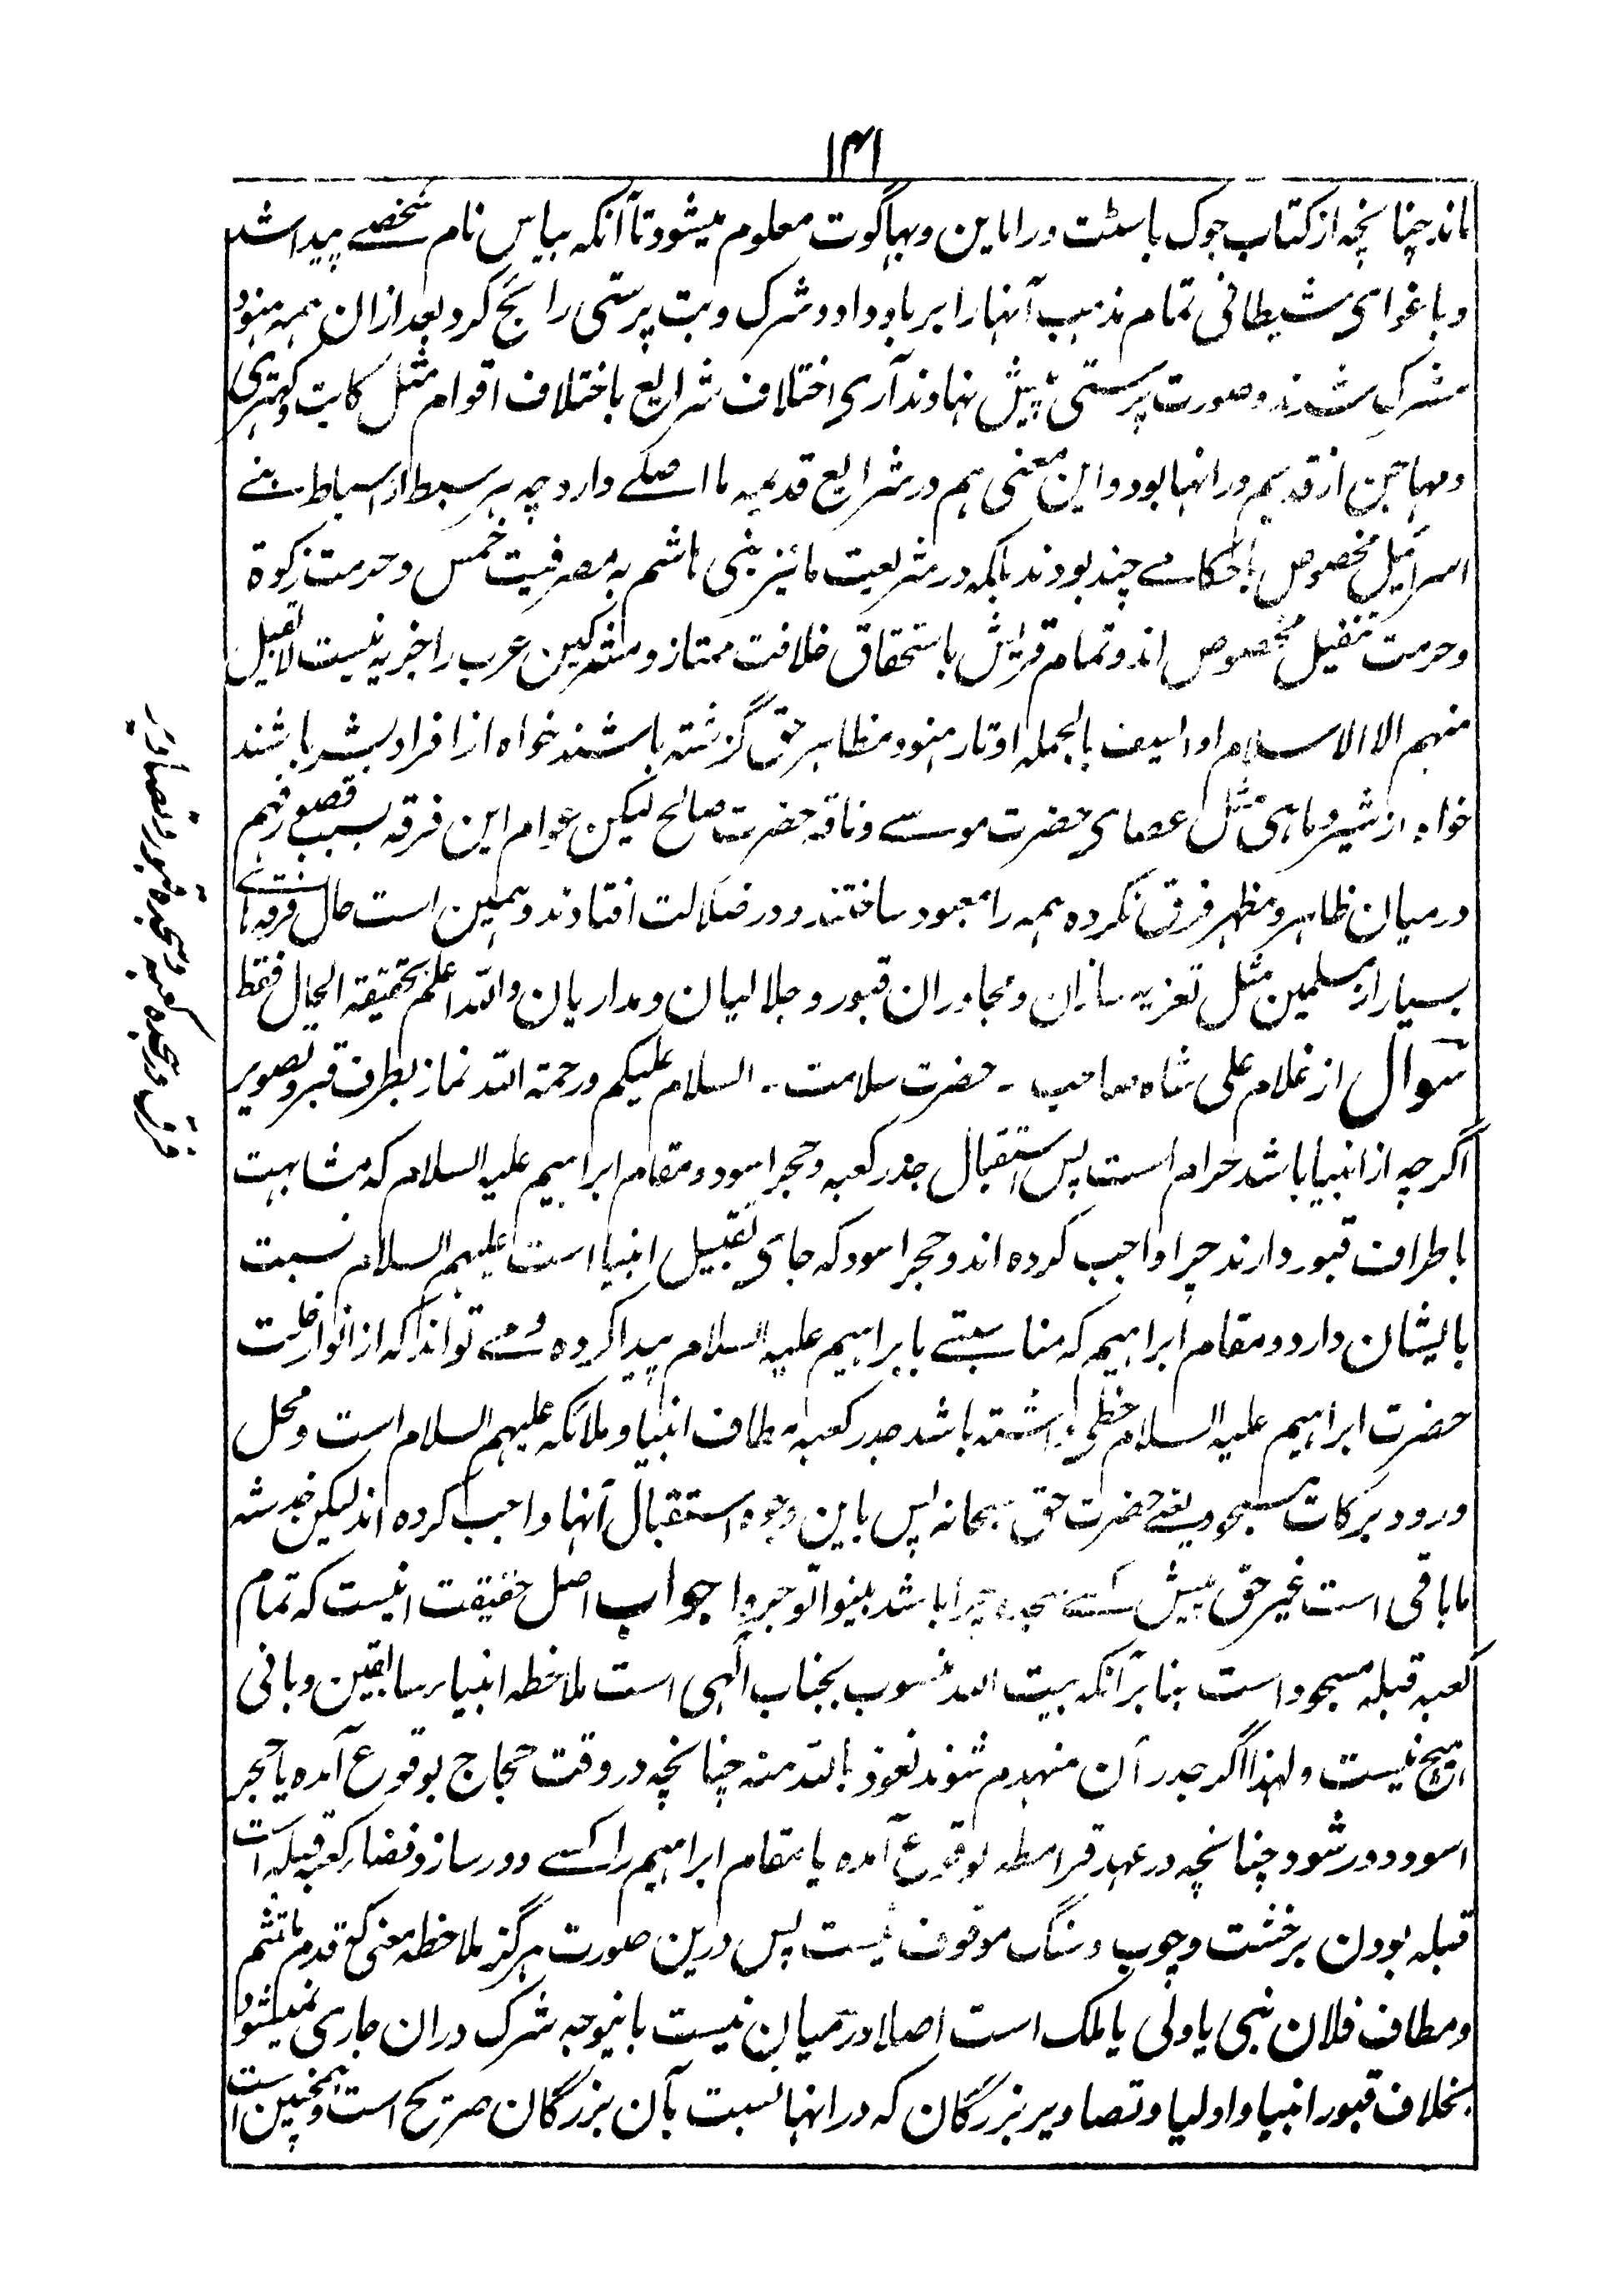 ۱۴۱
ماند چنانچه از کتاب جوک باسشت و راماین و بهاگوت معلوم میشود تا آنکه بیاس نام شخصے پیدا شد
و باغوای شیطانی تمام مذہب آنها را برباد داد و شرک و بت پرستی رائج کرد بعد ازان ہمه ہنود
مشرک شدند و صورت پرستی پیش نهادند آری اختلاف شرایع باختلاف اقوام مثل کایت و کہتری
و مهاجن از قدیم در انها بود و این معنی ہم در شرایع قدیمہ ما اصلے دارد چه ہر سبط از اسباط بنے
اسرائیل مخصوص باحکامے چند بودند بلکه در شریعت ما نیز بنی ہاشم به مصرفیت خمس و حرمت زکوة
و حرمت تنفیل مخصوص اند و تمام قریش باستحقاق خلافت ممتاز و مشرکین عرب را جزیه نیست لا یقبل
منهم الا الاسلام او السیف بالجمله اوتار ہنود مظاہر حق گزشته باشند خواه از افراد بشر باشند
خواه از شیر و ماہی مثل عصای حضرت موسے و ناقه حضرت صالح لیکن عوام این فرقه بسبب قصور فهم
درمیان ظاہر و مظہر فرق نکرده ہمه را معبود ساختند و در ضلالت افتادند و ہمین است حال فرقہائے
بسیار از مسلمین مثل تعزیه سازان و مجاوران قبور و جلالیان و مداریان والله اعلم بحقیقة الحال فقط
سوال از غلام علی شاه صاحب - حضرت سلامت - السلام علیکم و رحمة الله نماز بطرف قبر و تصویر
اگرچه از انبیا باشد حرام است پس استقبال جدر کعبه و حجر اسود و مقام ابراہیم علیه السلام که مشابہت
باطراف قبور دارند چرا واجب کرده اند و حجر اسود که جای تقبیل انبیا است علیہم السلام نسبت
بایشان دارد و مقام ابراہیم که مناسبتے بابراہیم علیه السلام پیدا کرده مے تواند که از انوار خلت
حضرت ابراہیم علیه السلام حظی داشته باشد جدر کعبه مطاف انبیا و ملائکه علیہم السلام است و محل
ورود برکات مسجود یعنے حضرت حق سبحانه پس باین وجوه استقبال آنها واجب کرده اند لیکن خدشه
ما باقی است غیر حق پیش کسے سجده چرا باشد بینوا توجروا جواب اصل حقیقت اینست که تمام
کعبه قبله مسجود است بنا بر آنکه بیت الله منسوب بجناب الٰہی است ملاحظه انبیاء سابقین و بانی
آن ہیچ نیست و لہذا اگر جدر آن منہدم شوند نعوذ بالله منه چنانچه در وقت حجاج بوقوع آمده یا حجر
اسود دور شود چنانچه در عہد قرامطه بوقوع آمده یا مقام ابراہیم را کسے دور سازد فضاء کعبه قبله است
قبله بودن بر خشت و چوب و سنگ موقوف نیست پس درین صورت ہرگز ملاحظه معنی که قدم
و مطاف فلان نبی یا ولی یا ملک است اصلا درمیان نیست باینوجه شرک دران جاری نمیشود
بخلاف قبور انبیا و اولیا و تصاویر بزرگان که در انها نسبت بآن بزرگان صریح است و ہمچنین است
فرق در سجده کعبه و سجده قبور و تصاویر